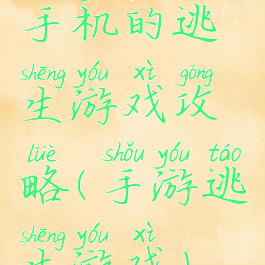 手机的逃
shēng yóu xì gōng
生游戏攻
lüè shǒu yóu táo
略(手游逃
shēng yóu xì
生游戏)